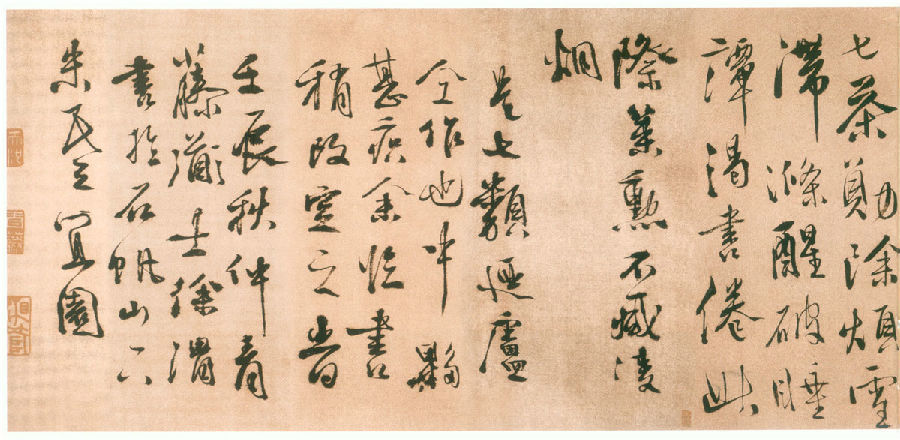 七茶勛除煩雪
滯滌醒破睡
譚渴書倦此
際策勳不減凌
烟
是七類廼盧
仝作也中夥
甚疾余臨書
稍改定之時
壬辰秋仲青
藤道士徐渭
書於石帆山下
朱氏三宜園